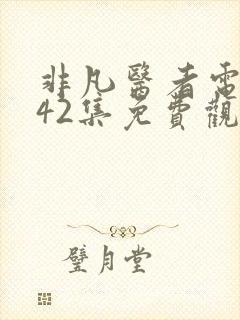 非凡醫者電
42集免費觀
璧月堂